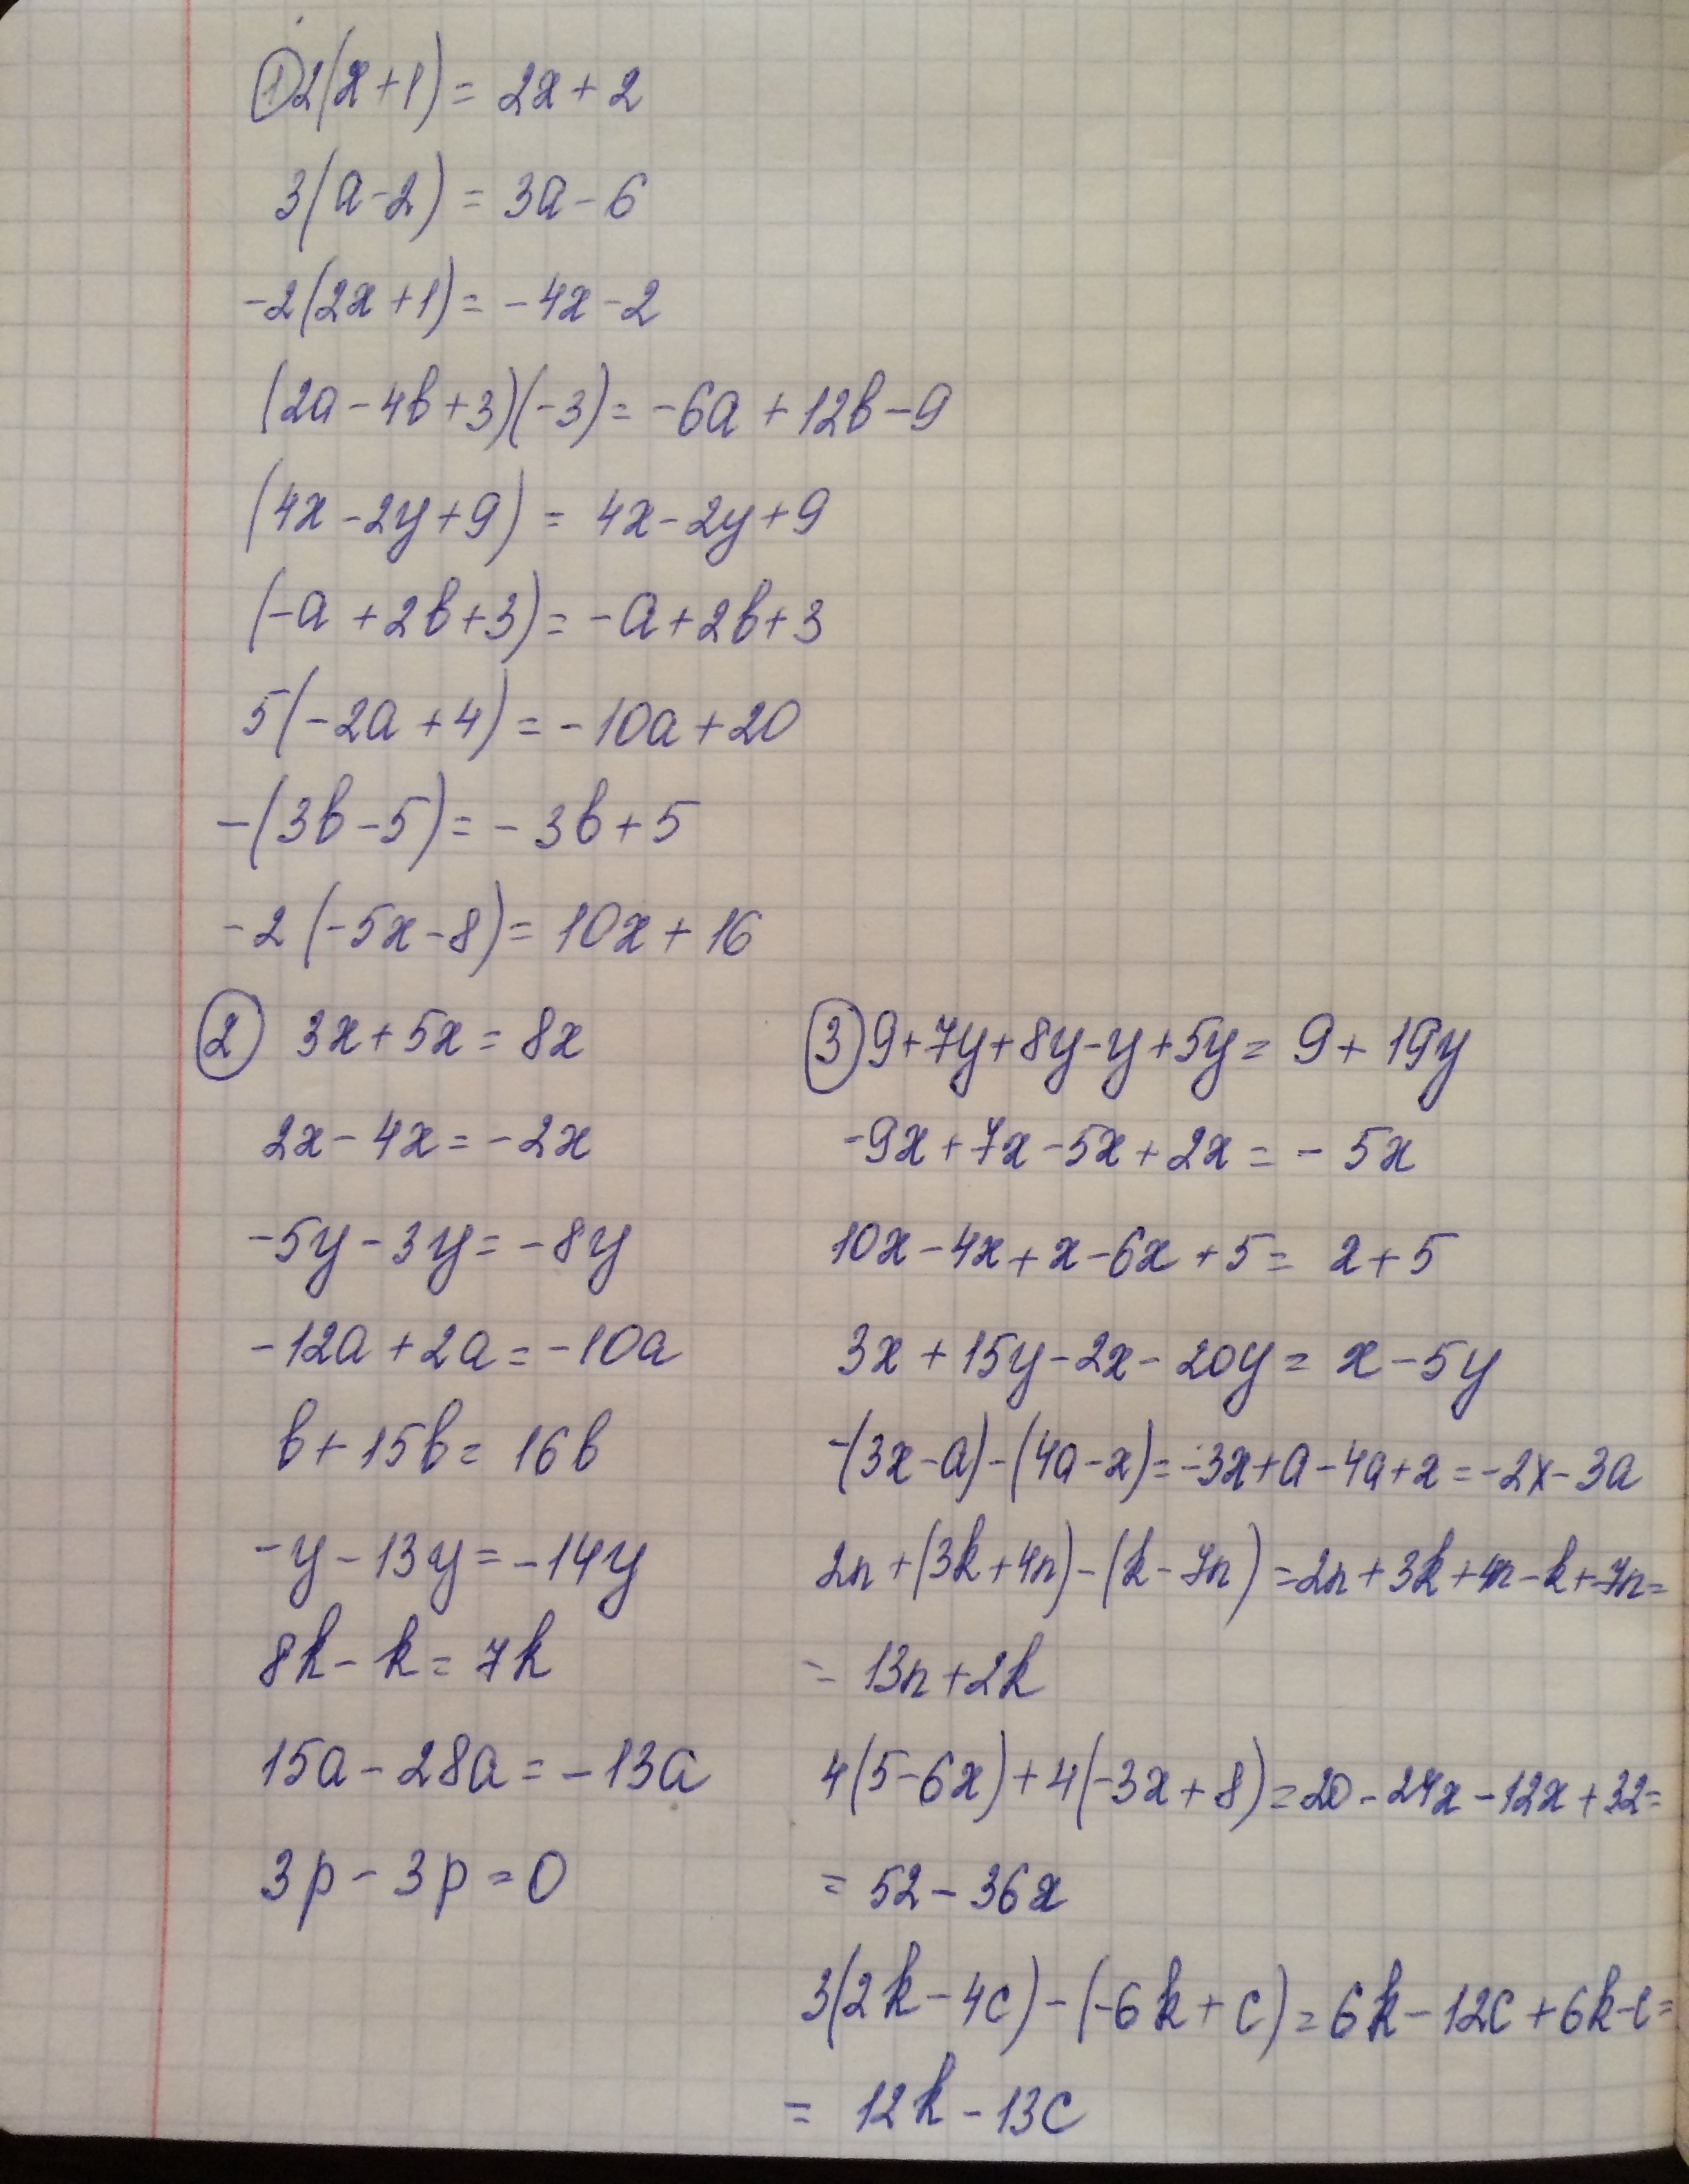 ① 2(x+1) = 2x+2
3(a-2) = 3a-6
-2(2x+1) = -4x-2
(2a-4b+3)(-3) = -6a+12b-9
(4x-2y+9) = 4x-2y+9
(-a+2b+3) = -a+2b+3
5(-2a+4) = -10a+20
-(3b-5) = -3b+5
-2(-5x-8) = 10x+16
② 3x+5x = 8x
2x-4x = -2x
-5y-3y = -8y
-12a+2a = -10a
b+15b = 16b
-y-13y = -14y
8k-k = 7k
15a-28a = -13a
3p-3p = 0
③ 9+7y+8y-y+5y = 9+19y
-9x+7x-5x+2x = -5x
10x-4x+x-6x+5 = x+5
3x+15y-2x-20y = x-5y
-(3x-a)-(4a-x) = -3x+a-4a+x = -2x-3a
2n+(3k+4n)-(k-7n) = 2n+3k+4n-k+7n =
= 13n+2k
4(5-6x)+4(-3x+8) = 20-24x-12x+32 =
= 52-36x
3(2k-4c)-(-6k+c) = 6k-12c+6k-c =
= 12k-13c